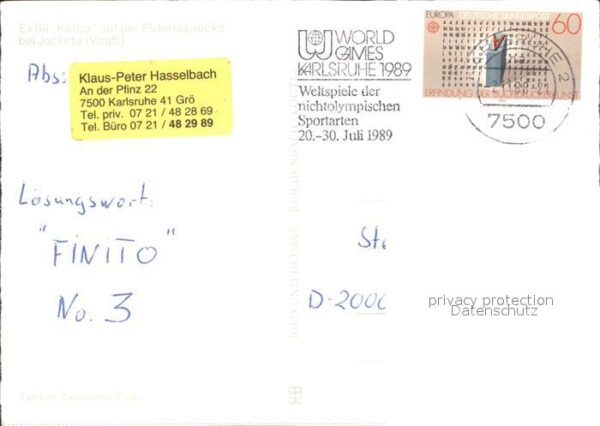 Ex 69 "Karlex" auf der Elstertalbrücke
bei Jocketa (Vogtl.)
Abs:
Klaus-Peter Hasselbach
An der Pfinz 22
7500 Karlsruhe 41 Grö
Tel. priv. 07 21 / 48 28 69
Tel. Büro 07 21 / 48 29 89
Lösungswort:
"FINITO"
No. 3
WORLD
GAMES
KARLSRUHE 1989
Weltspiele der
nichtolympischen
Sportarten
20.–30. Juli 1989
EUROPA DEUTSCHE BUNDESPOST 60
ERFINDUNG DER BUCHDRUCKERKUNST
KARLSRUHE 2
7500
Ste
D-2000
privacy protection
Datenschutz